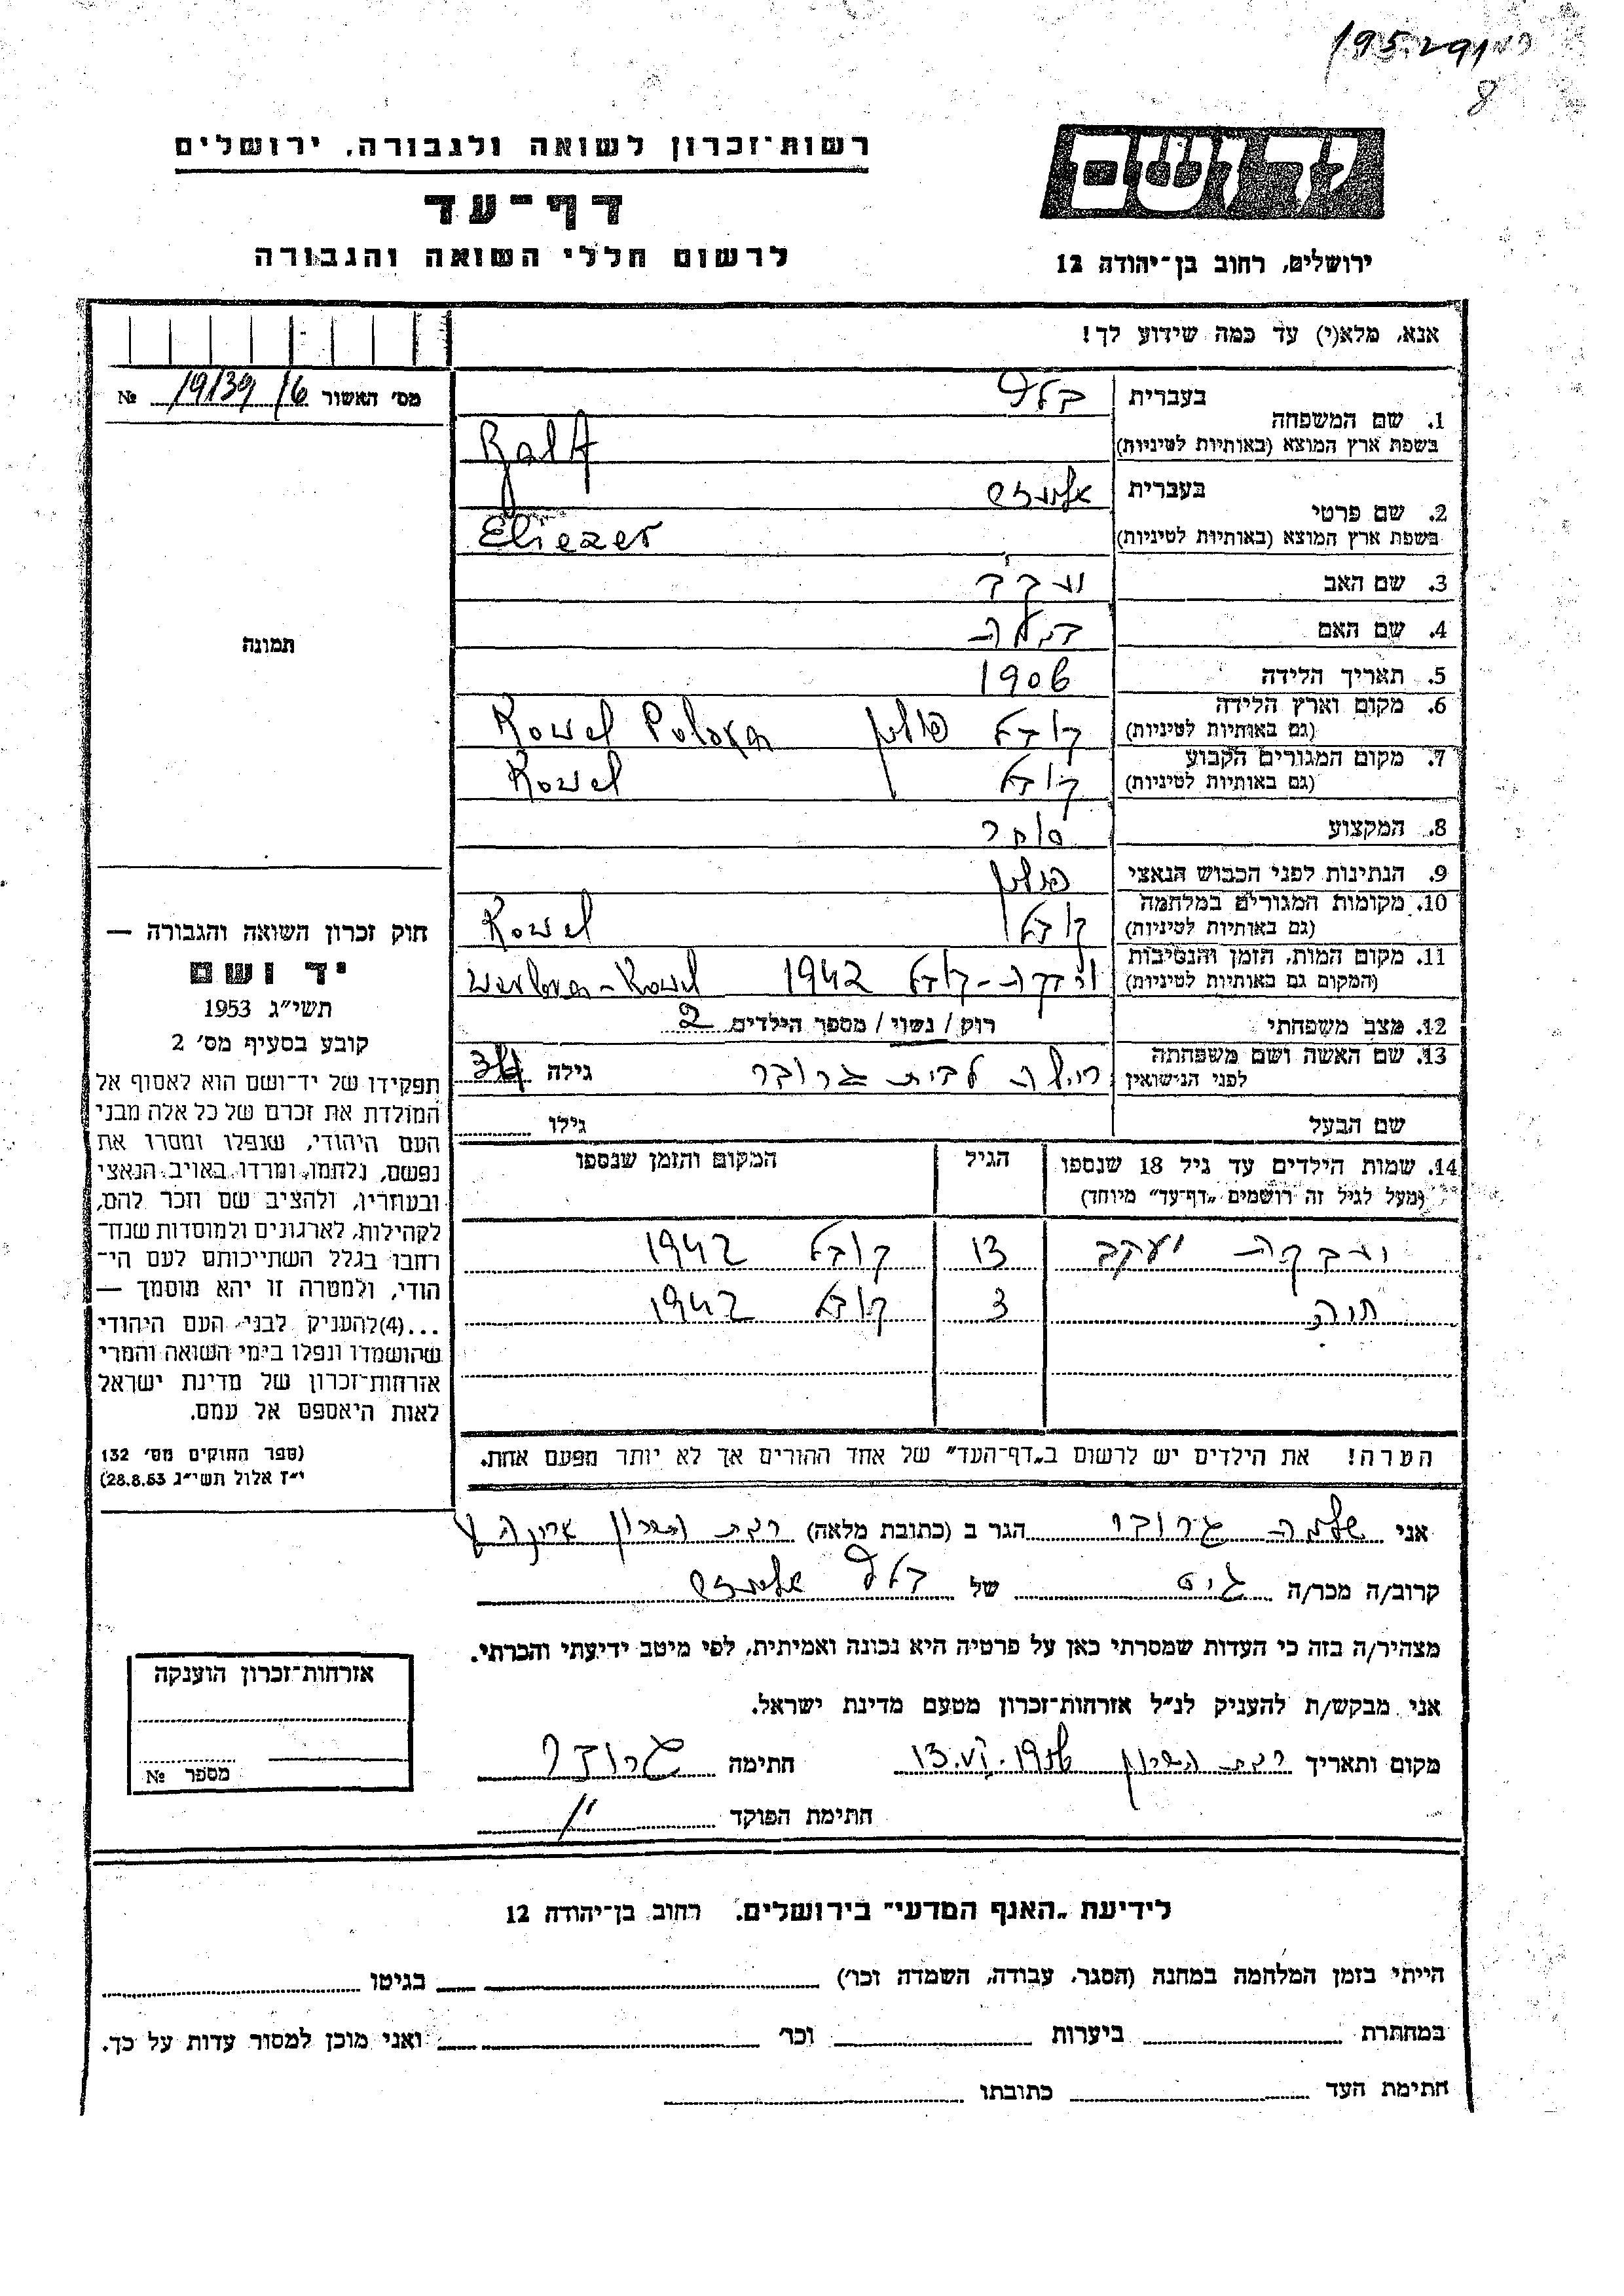 195.291
8
רשות־זכרון לשואה ולגבורה, ירושלים
דף־עד
לרשום חללי השואה והגבורה
יד ושם
ירושלים, רחוב בן־יהודה 12
אנא, מלא(י) עד כמה שידוע לך!
מס׳ האשור 19139/6 №
1. שם המשפחה
בעברית בלט
בשפת ארץ המוצא (באותיות לטיניות) Balt
2. שם פרטי
בעברית אליעזר
בשפת ארץ המוצא (באותיות לטיניות) Eliezer
3. שם האב
4. שם האם
5. תאריך הלידה 1906
6. מקום וארץ הלידה
(גם באותיות לטיניות) קובל פולין Kowel
7. מקום המגורים הקבוע
(גם באותיות לטיניות) קובל Kowel
8. המקצוע סוחר
9. הנתינות לפני הכבוש הנאצי פולין
10. מקומות המגורים במלחמה
(גם באותיות לטיניות) קובל Kowel
11. מקום המות, הזמן והנסיבות
(המקום גם באותיות לטיניות) קובל 1942 Kowel
12. מצב משפחתי רווק / נשוי / מספר הילדים 2
13. שם האשה ושם משפחתה
לפני הנישואין לבית גרובר גילה 34
שם הבעל גילו
14. שמות הילדים עד גיל 18 שנספו
(מעל לגיל זה רושמים „דף־עד״ מיוחד)
הגיל
המקום והזמן שנספו
יעקב 13 קובל 1942
3 קובל 1942
הערה! את הילדים יש לרשום ב„דף־העד״ של אחד ההורים אך לא יותר מפעם אחת.
תמונה
חוק זכרון השואה והגבורה —
יד ושם
תשי״ג 1953
קובע בסעיף מס׳ 2
תפקידו של יד־ושם הוא לאסוף אל
המולדת את זכרם של כל אלה מבני
העם היהודי, שנפלו ומסרו את
נפשם, נלחמו ומרדו באויב הנאצי
ובעוזריו, ולהציב שם וזכר להם,
לקהילות, לארגונים ולמוסדות שנח־
רחבו בגלל השתייכותם לעם הי־
הודי, ולמטרה זו יהא מוסמך —
...(4)להעניק לבני העם היהודי
שהושמדו ונפלו בימי השואה והמרי
אזרחות־זכרון של מדינת ישראל
לאות היאספם אל עמם.
(ספר החוקים מס׳ 132
י״ז אלול תשי״ג 28.8.53)
אני שלמה גרובר הגר ב (כתובת מלאה) רמת השרון
קרוב/ה מכר/ה גיס של בלט אליעזר
מצהיר/ה בזה כי העדות שמסרתי כאן על פרטיה היא נכונה ואמיתית, לפי מיטב ידיעתי והכרתי.
אני מבקש/ת להעניק לנ״ל אזרחות־זכרון מטעם מדינת ישראל.
מקום ותאריך רמת השרון 13.VI.1956 חתימה גרובר
חתימת הפוקד
אזרחות־זכרון הוענקה
מספר №
לידיעת „האגף המדעי״ בירושלים. רחוב בן־יהודה 12
הייתי בזמן המלחמה במחנה (הסגר, עבודה, השמדה וכו׳) בגיטו
במחתרת ביערות וכו׳ ואני מוכן למסור עדות על כך.
חתימת העד כתובתו